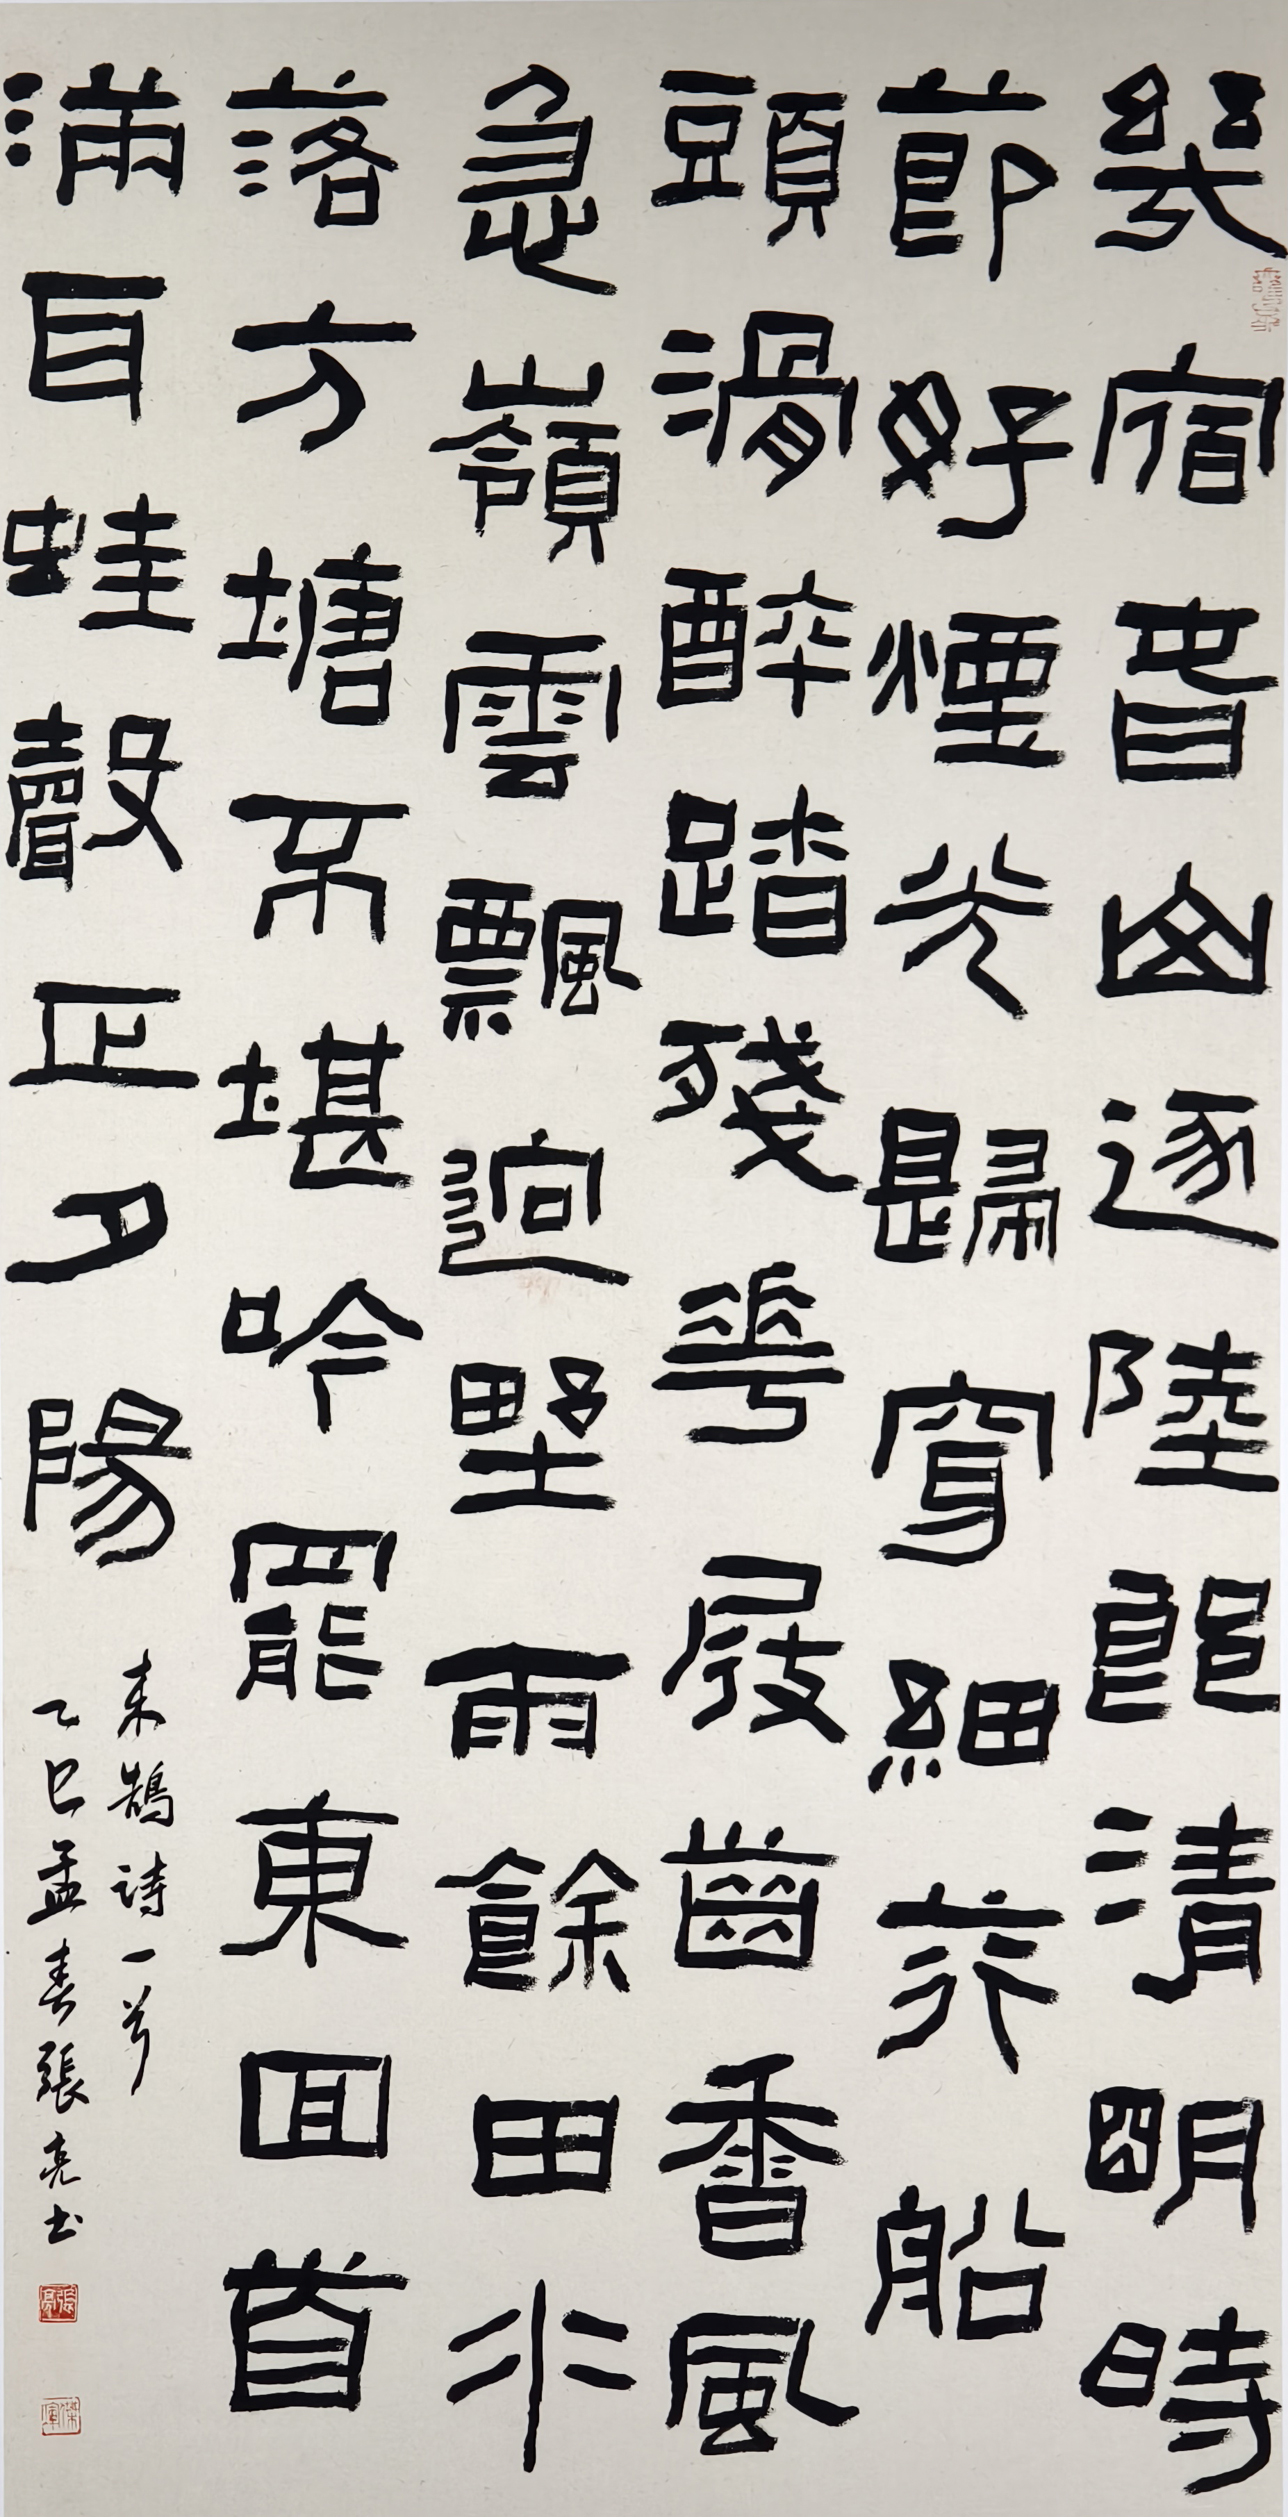 幾宿春山逐陸郎清明時
節好煙光歸穿細荇船
頭滑醉踏殘華屐齒香風
急嶺雲飄逈野雨餘田水
落方塘不堪吟罷東回首
滿耳蛙聲正夕陽
來鵠詩一首
乙巳孟春張亮书
張亮